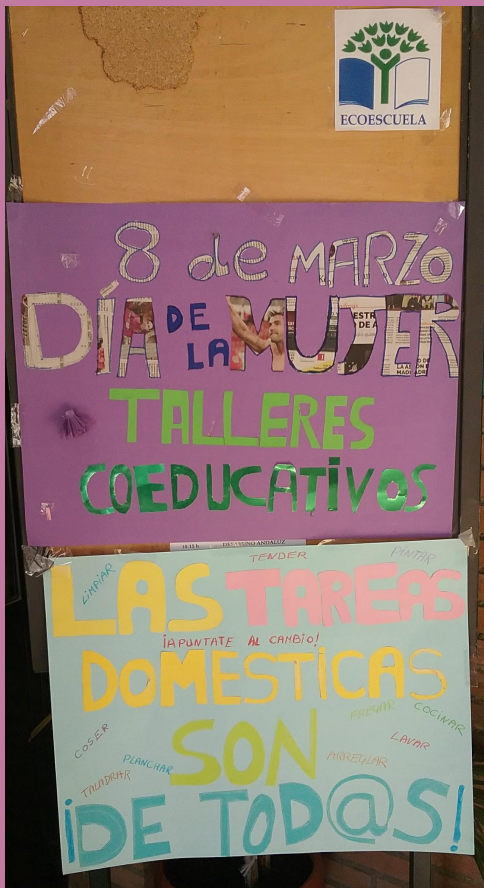 ECOESCUELA
8 de MARZO
DÍA DE LA MUJER
TALLERES
COEDUCATIVOS
TENDER
PINTAR
LIMPIAR
LAS TAREAS
¡APUNTATE AL CAMBIO!
DOMESTICAS
FREGAR
COCINAR
COSER
SON
LAVAR
PLANCHAR
ARREGLAR
TALADRAR
¡DE TOD@S!